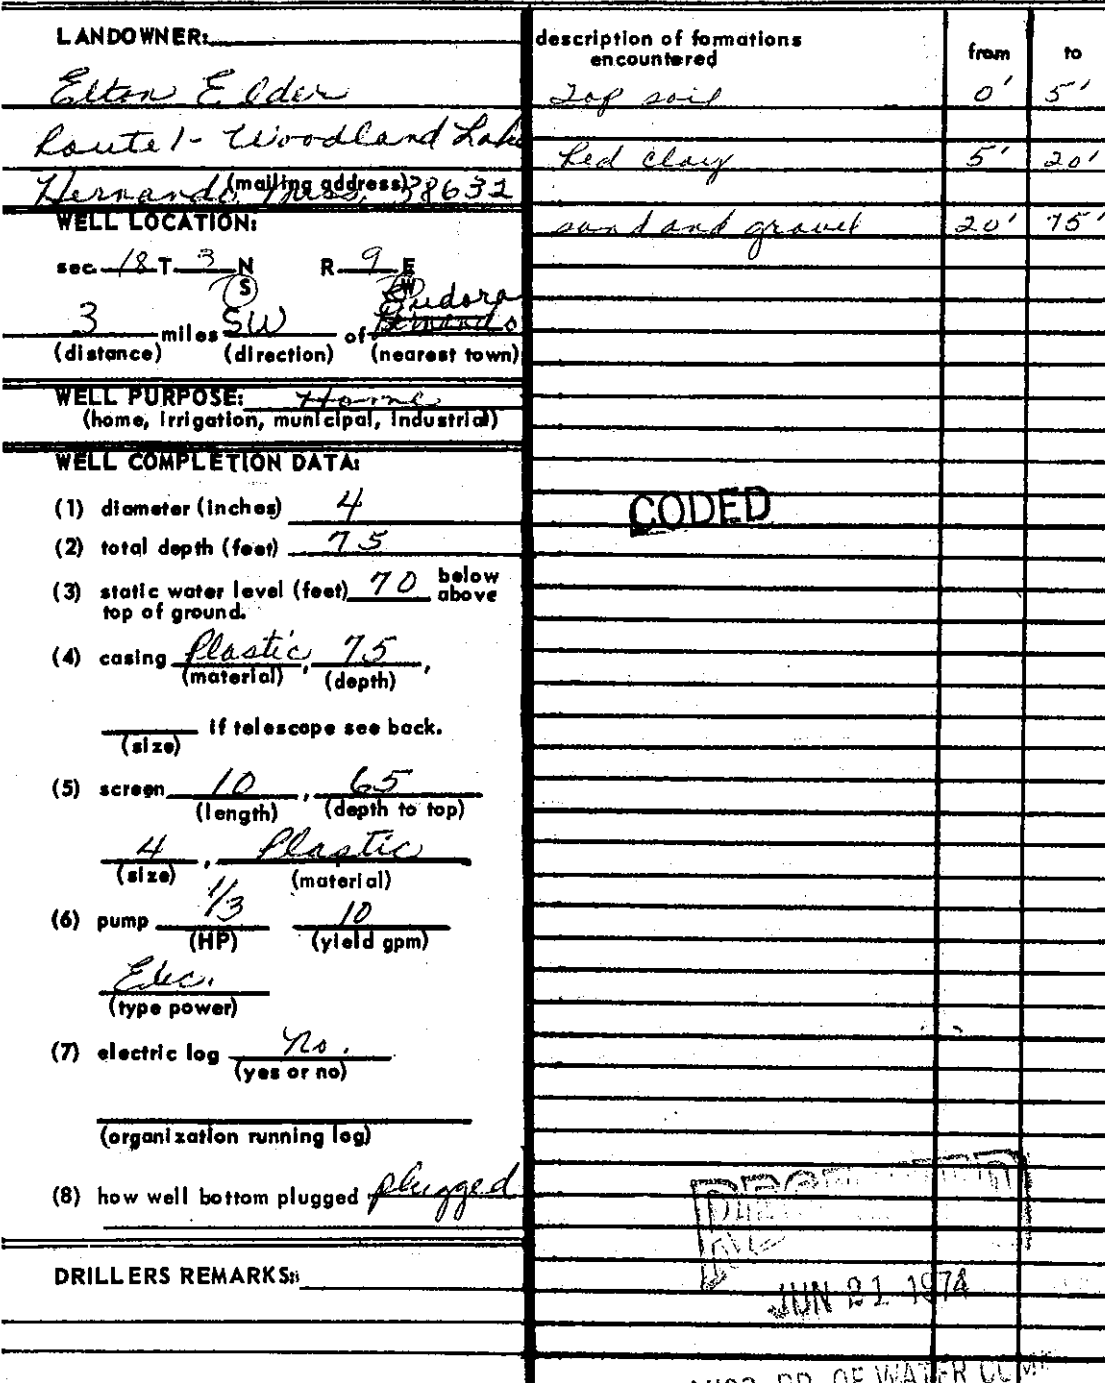 LANDOWNER:
Elton Elder
Route 1 - Woodland Lake
Hernando, Miss. 38632
(mailing address)
WELL LOCATION:
sec. 18 T. 3 N R. 9 E
S W
3 miles SW of Eudora
Hernando
(distance) (direction) (nearest town)
WELL PURPOSE: Home
(home, irrigation, municipal, industrial)
WELL COMPLETION DATA:
(1) diameter (inches) 4
(2) total depth (feet) 75
(3) static water level (feet) 70 below
above
top of ground.
(4) casing Plastic, 75,
(material) (depth)
(size) if telescope see back.
(5) screen 10, 65
(length) (depth to top)
4, Plastic
(size) (material)
(6) pump 1/3 10
(HP) (yield gpm)
Elec.
(type power)
(7) electric log No.
(yes or no)
(organization running log)
(8) how well bottom plugged plugged
DRILLERS REMARKS:
description of formations
encountered from to
Top soil 0' 5'
Red clay 5' 20'
sand and gravel 20' 75'
CODED
JUN 21 1974
OF WATER